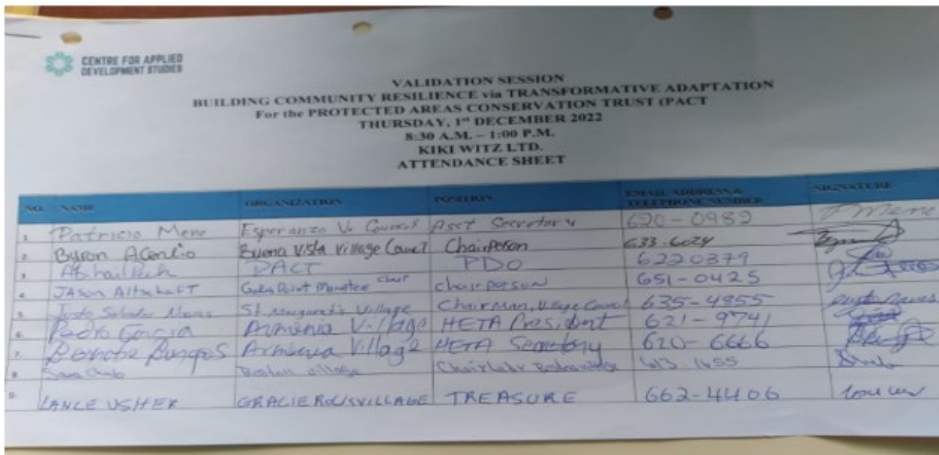 CENTRE FOR APPLIED
DEVELOPMENT STUDIES
VALIDATION SESSION
BUILDING COMMUNITY RESILIENCE via TRANSFORMATIVE ADAPTATION
For the PROTECTED AREAS CONSERVATION TRUST (PACT
THURSDAY, 1st DECEMBER 2022
8:30 A.M. – 1:00 P.M.
KIKI WITZ LTD.
ATTENDANCE SHEET
NO. NAME ORGANIZATION POSITION EMAIL ADDRESS & TELEPHONE NUMBER SIGNATURE
1. Patricio Mene Esperanza V. Council Asst Secretary 620-0989
2. Byron Acentio Buena Vista Village Council Chairperson 633-6024
3. PACT PDO 6220379
4. Jason Altschaft Point Manatee chairperson 651-0425
5. St. Margaret's Village Chairman, Village Council 635-4955
6. Pedro Garcia Armenia Village HETA President 621-9741
7. Burgos Armenia Village HETA Secretary 620-6666
8. Village 613 1655
9. LANCE USHER TREASURE 662-4406